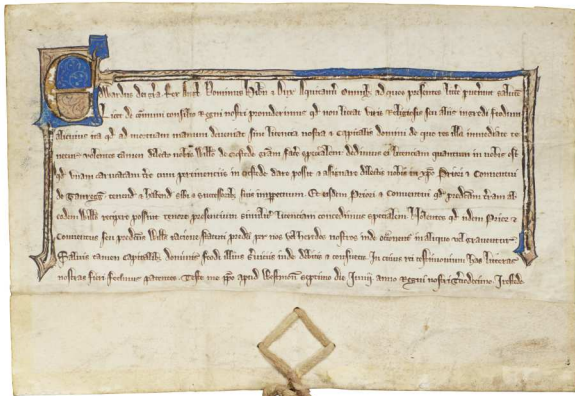 Edwardus dei gra Rex Angl Dominus Hibn & Dux Aquitann Omnibz ad quos presentes lre pervenint saltm
Licet de comuni consilio Regni nostri providerimus qd non liceat viris religiosis seu aliis ingredi feodum
alicuius ita qd ad mortuam manum deveniat sine licencia nostra & capitalis domini de quo res illa immediate te
netur volentes tamen dilecto nobis Willo de gram face specialem dedimus ei licenciam quantum in nobis est
qd unam carucatam tre cum pertinenciis in dare possit & assignare dilectis nobis in xpo Priori & Conventui
de tenend & habend sibi & successoribz suis imperpetuum Et eisdem Priori & Conventui qd predictam tram ab
eodem Willo recipere possint tenore presencium similit licenciam concedimus specialem Nolentes qd idem Prior &
Conventus seu predcus Wills racione statuti predci per nos vl heredes nostros inde occonent in aliquo vel graventur
Salvis tamen capitalibz dominis feodi illius serviciis inde debitis & consuetis In cuius rei testimonium has litteras
nostras fieri fecimus patentes Teste me ipo apud Westmon septimo die Junij anno Regni nostri